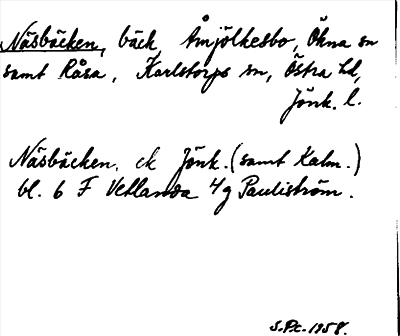 Näsbäcken, bäck, Åmjölkesbo, Ökna sn
samt Råsa, Karlstorps sn, Östra hd,
Jönk. l.
Näsbäcken. ek Jönk. (samt Kalm.)
bl. 6 F Vetlanda 4g Pauliström.
S.Pt. 1958.